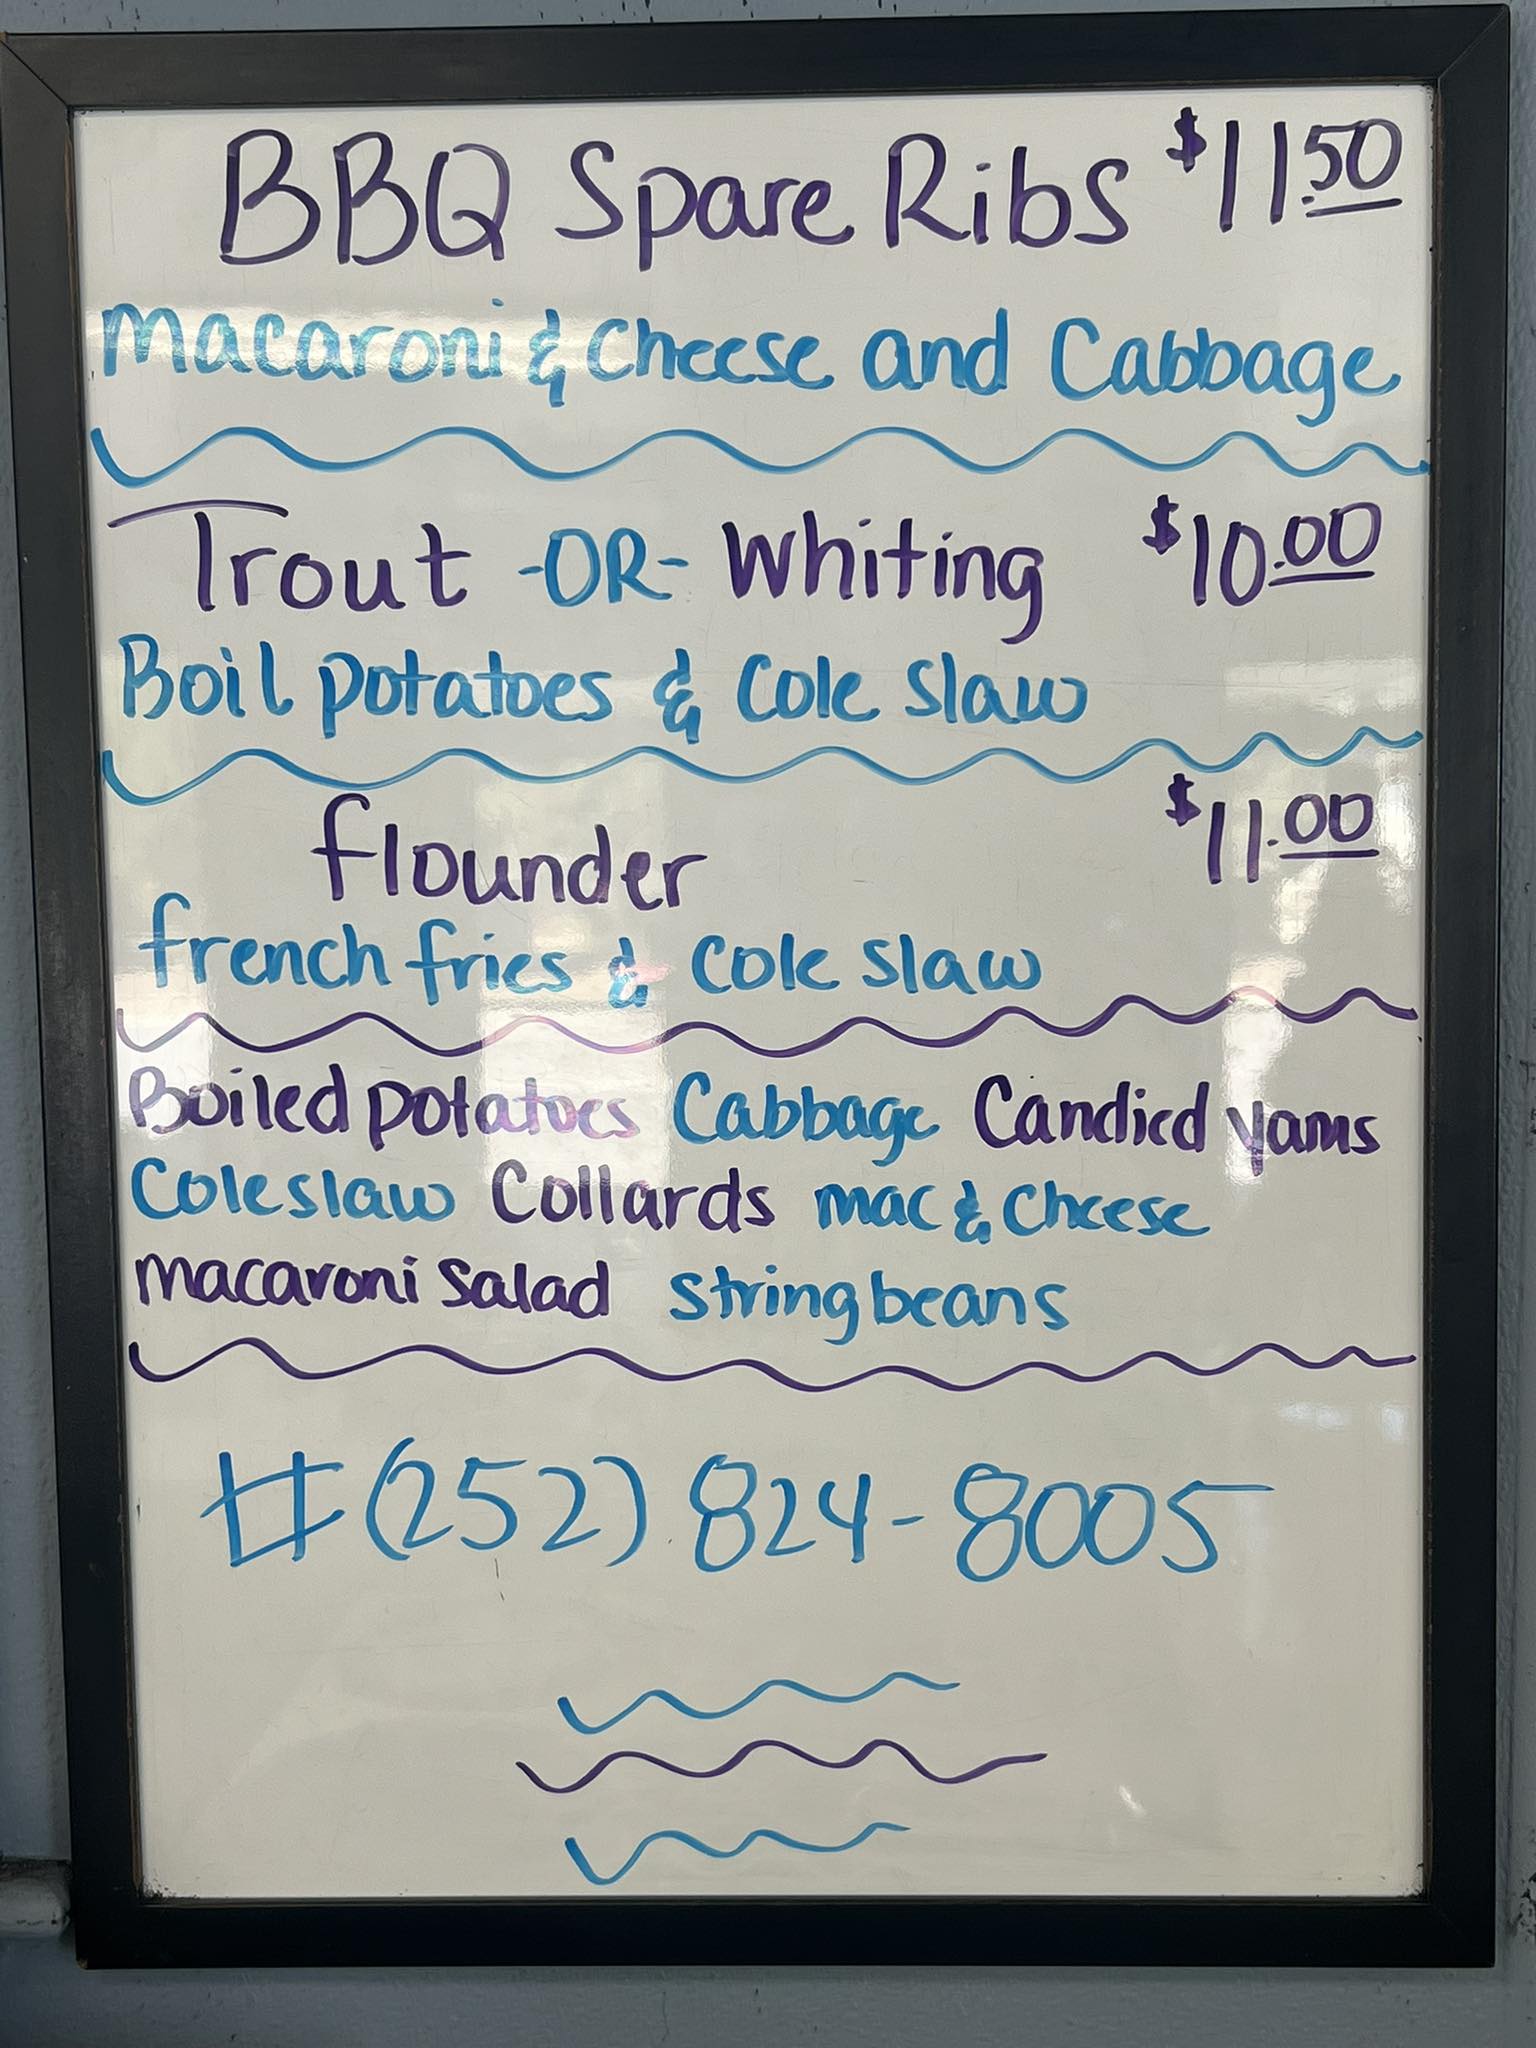 BBQ Spare Ribs $11.50
Macaroni & Cheese and Cabbage
Trout -OR- Whiting $10.00
Boil potatoes & Cole slaw
flounder $11.00
french fries & Cole slaw
Boiled potatoes Cabbage Candied yams
Coleslaw Collards mac & Cheese
macaroni Salad string beans
#(252) 824-8005